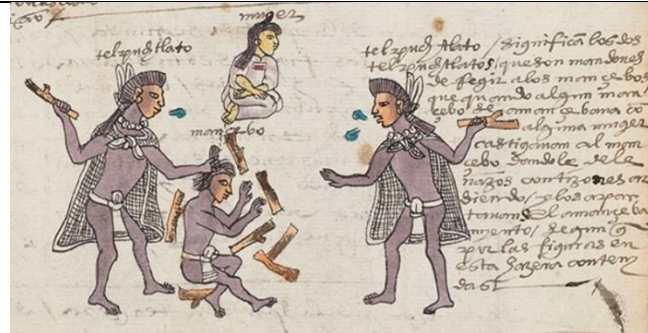 muger
telpuchtlato
mançebo
telpuchtlato / significa los dos
telpuchtlatos / que son mandones
de regir a los mançebos
que quando algun man
cebo se amancebava co
alguna muger
castigavan al man
cebo dandole de le
ñazos con tizones ar
diendo / y los apar
tavan del amançeba
miento / segun q
por las figuras en
esta hazera conteni
das